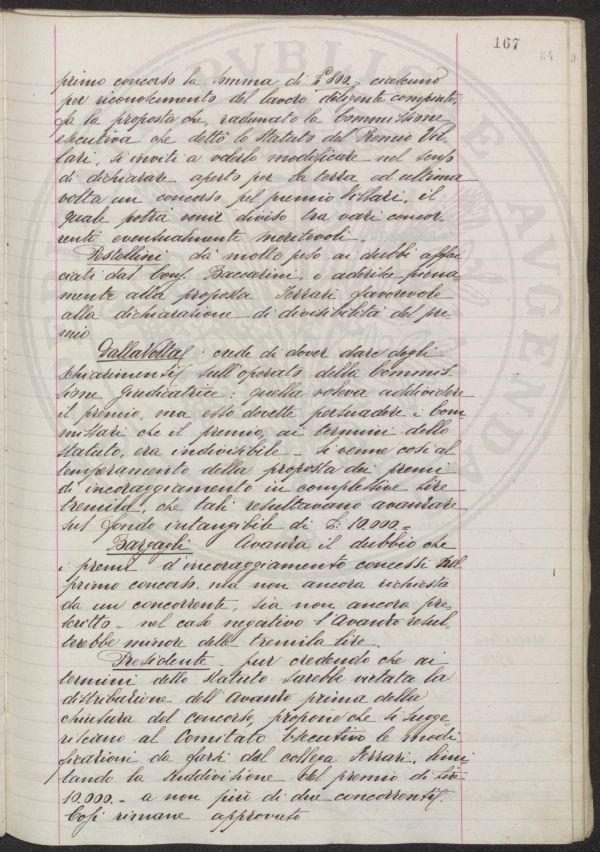 167
84
primo concorso la somma di £ 500, ciascuno
per riconoscimento del lavoro diligente compiuto,
fa la proposta che, radunata la Commissione
esecutiva che dettò lo Statuto del Premio Vil
lari, si inviti a volerlo modificare nel senso
di dichiarare aperto per la terza ed ultima
volta un concorso pel premio Villari, il
quale potrà venir diviso tra vari concor
renti eventualmente meritevoli.
Pestellini dà molto peso ai dubbi affac
ciati dal Cons. Baccarini, e aderisce piena
mente alla proposta Ferrari favorevole
alla dichiarazione di divisibilità del pre
mio
Dalla Volta crede di dover dare degli
schiarimenti sull'operato della Commis
sione giudicatrice: quella voleva addividere
il premio, ma esso dovette persuadere i Com
missari che il premio, ai termini dello
Statuto, era indivisibile – si venne così al
temperamento della proposta dei premi
di incoraggiamento in complessive lire
tremila, che tali resultavano avanzare
sul fondo intangibile di £: 10.000.=
Bargagli Avanza il dubbio che
i premi d'incoraggiamento concessi nel
primo concorso, ma non ancora richiesta
da un concorrente, sia non ancora pre=
scritto – nel caso negativo l'avanzo resul=
terebbe minore delle tremila lire.
Presidente – pur credendo che ai
termini dello Statuto sarebbe vietata la
distribuzione dell'avanzo prima della
chiusura del concorso, propone che si sugge=
riscano al Comitato Esecutivo le modi
ficazioni da farsi dal collega Ferrari, limi
tando la suddivisione del premio di Lire
10.000 – a non più di due concorrenti.
Così rimane approvato